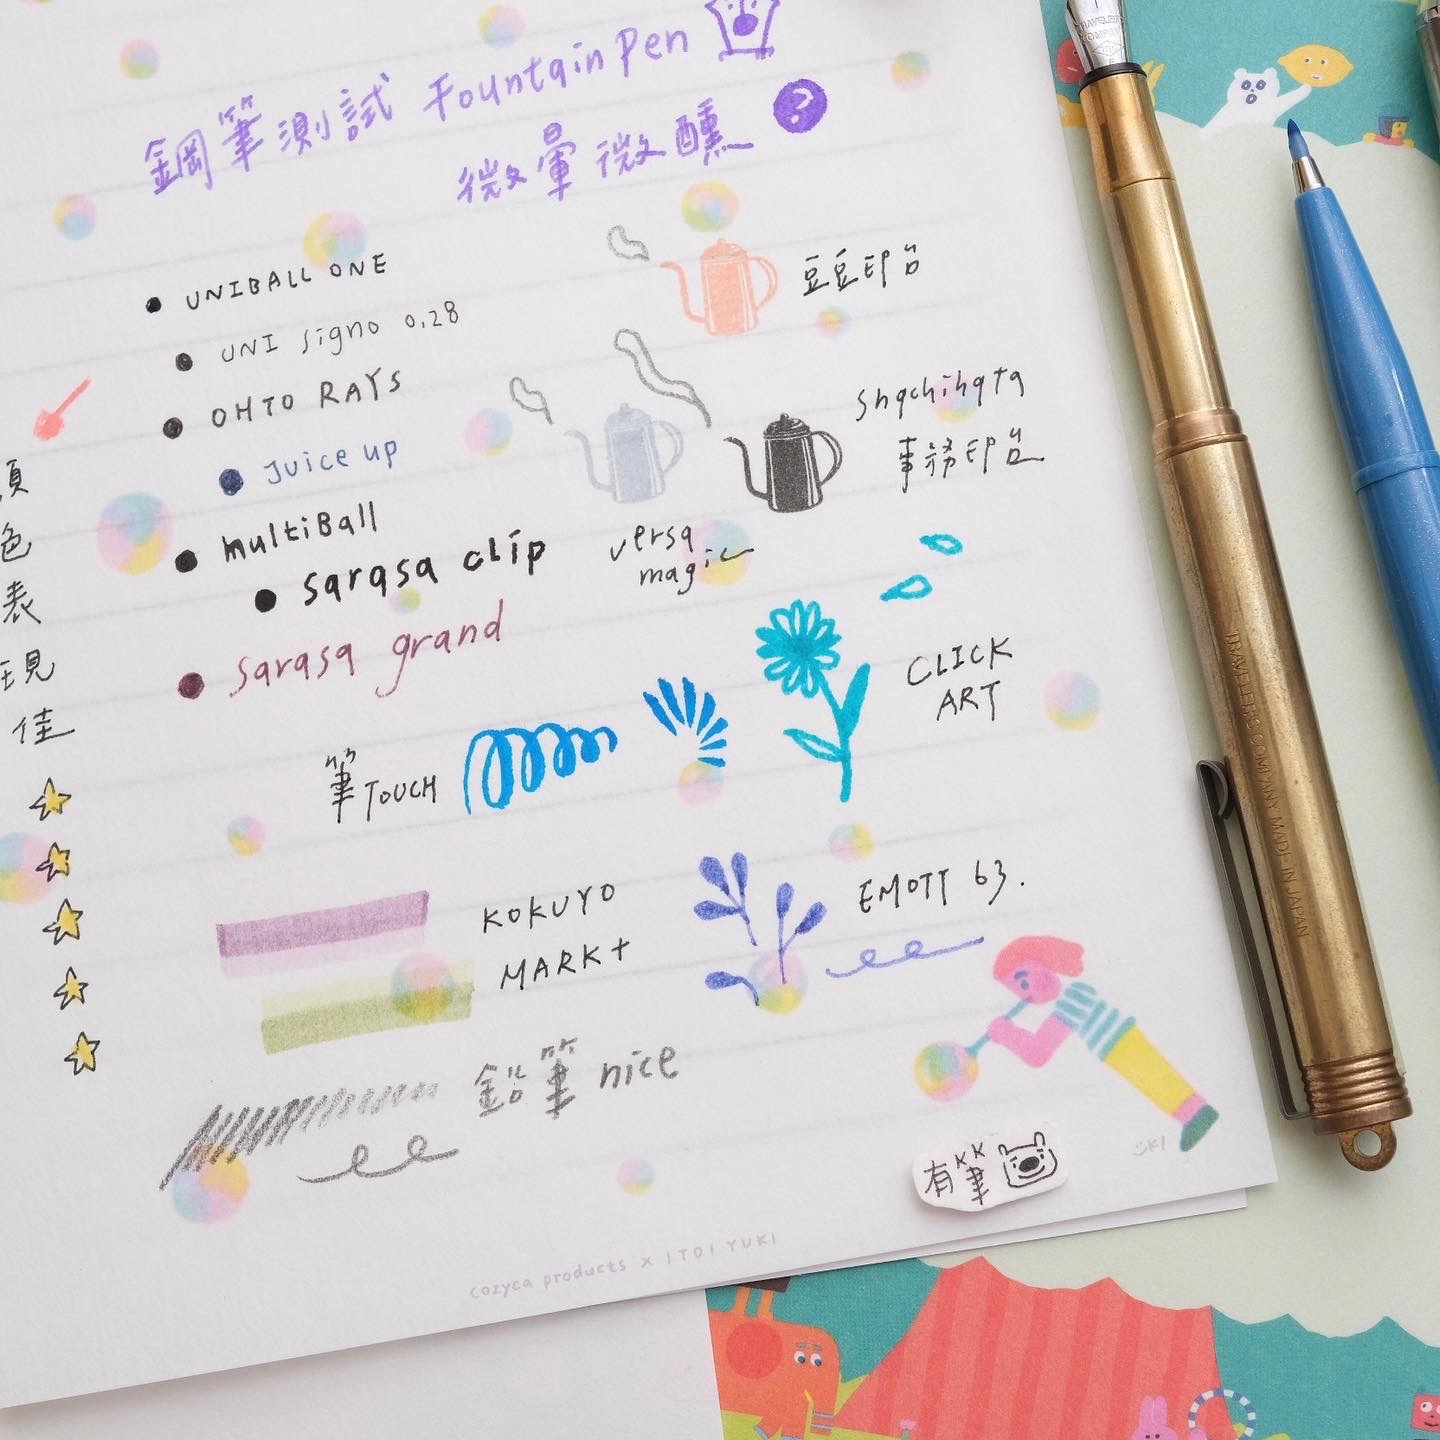 鋼筆測試 Fountain Pen
微暈微醺
UNIBALL ONE
UNI Signo 0.28
OHTO RAYS
Juice up
multiBall
sarasa clip
sarasa grand
豆豆印台
Shachihata
事務印台
versa
magic
CLICK
ART
筆TOUCH
KOKUYO
MARK+
EMOTT 63.
鉛筆 nice
色
表
現
佳
有筆
cozyca products x ITOI YUKI
TRAVELER'S COMPANY MADE IN JAPAN